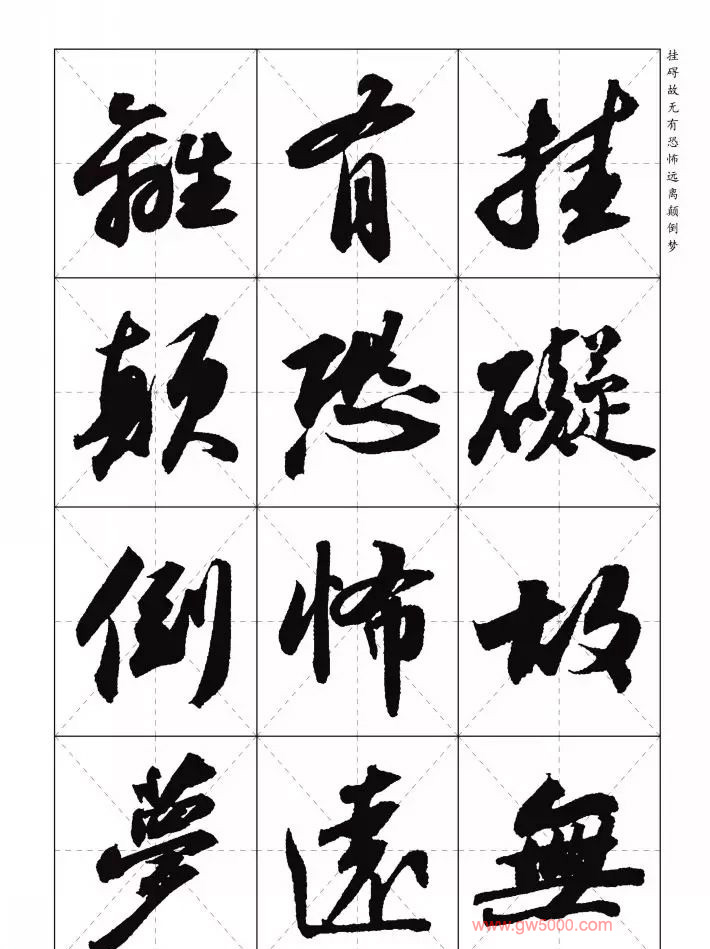 挂碍故无有恐怖远离颠倒梦
挂礙故無
有恐怖遠
離顛倒夢
www.gw5000.com